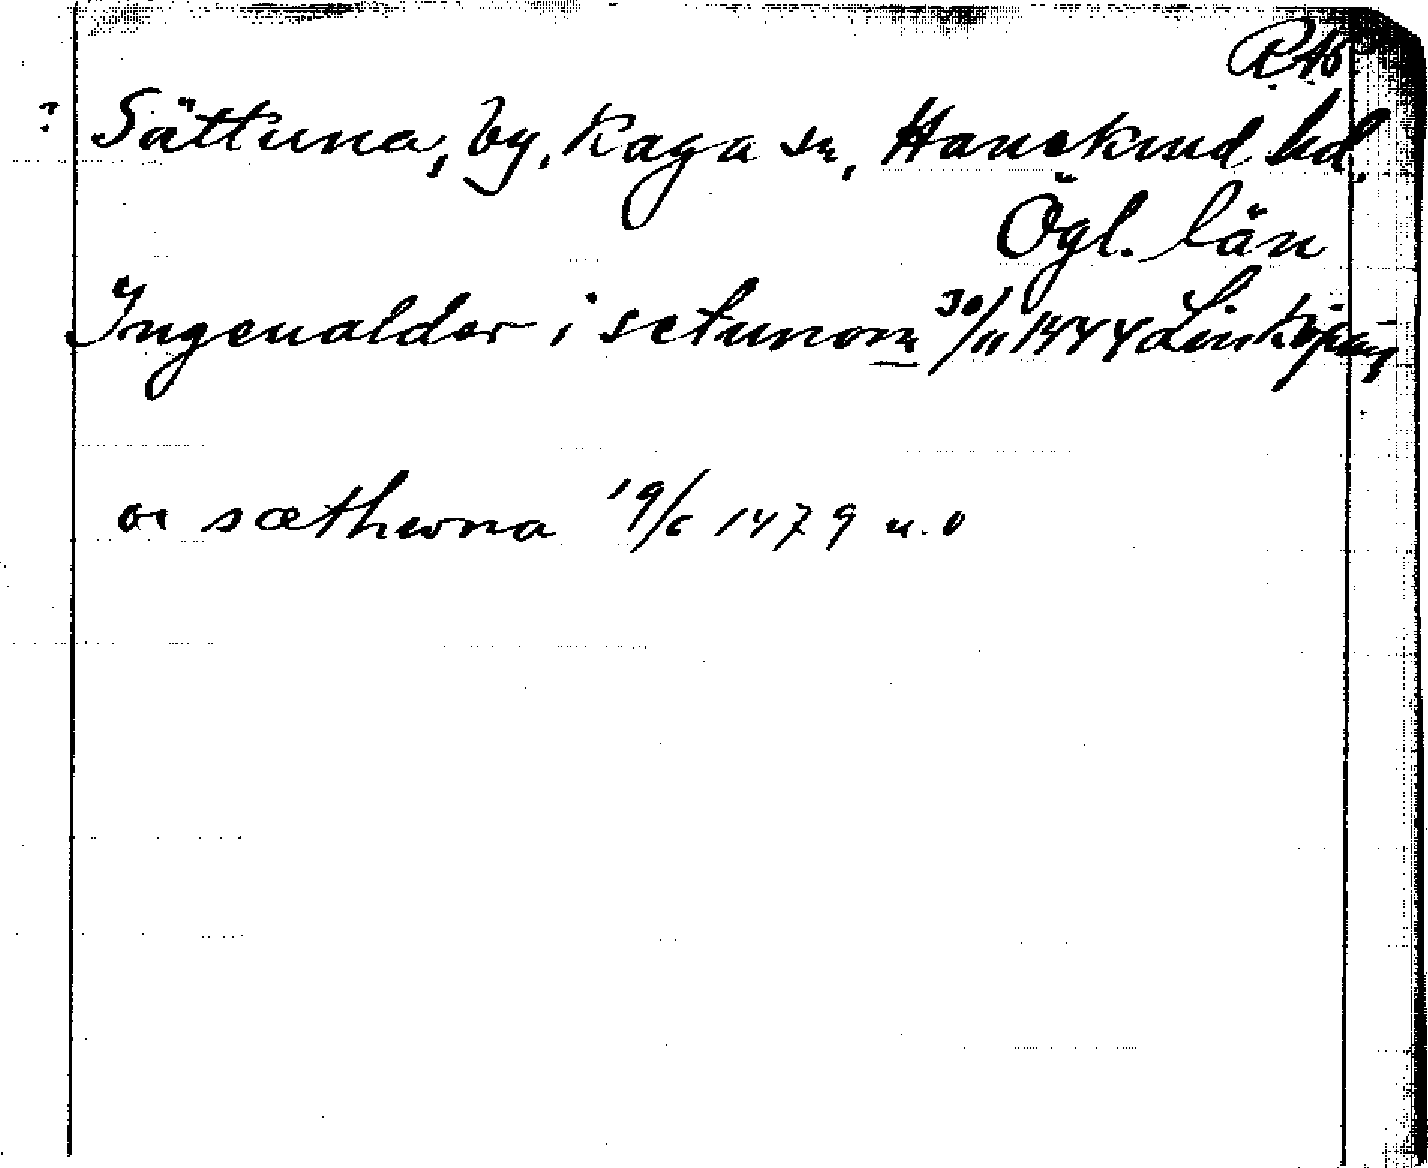 RAb
? Sättuna, by, Kaga sn, Hanekind hd.
Ögl. län
Ingeualder i setunom 30/11 1444 Linköping
or sæthwna 19/6 1479 u.o